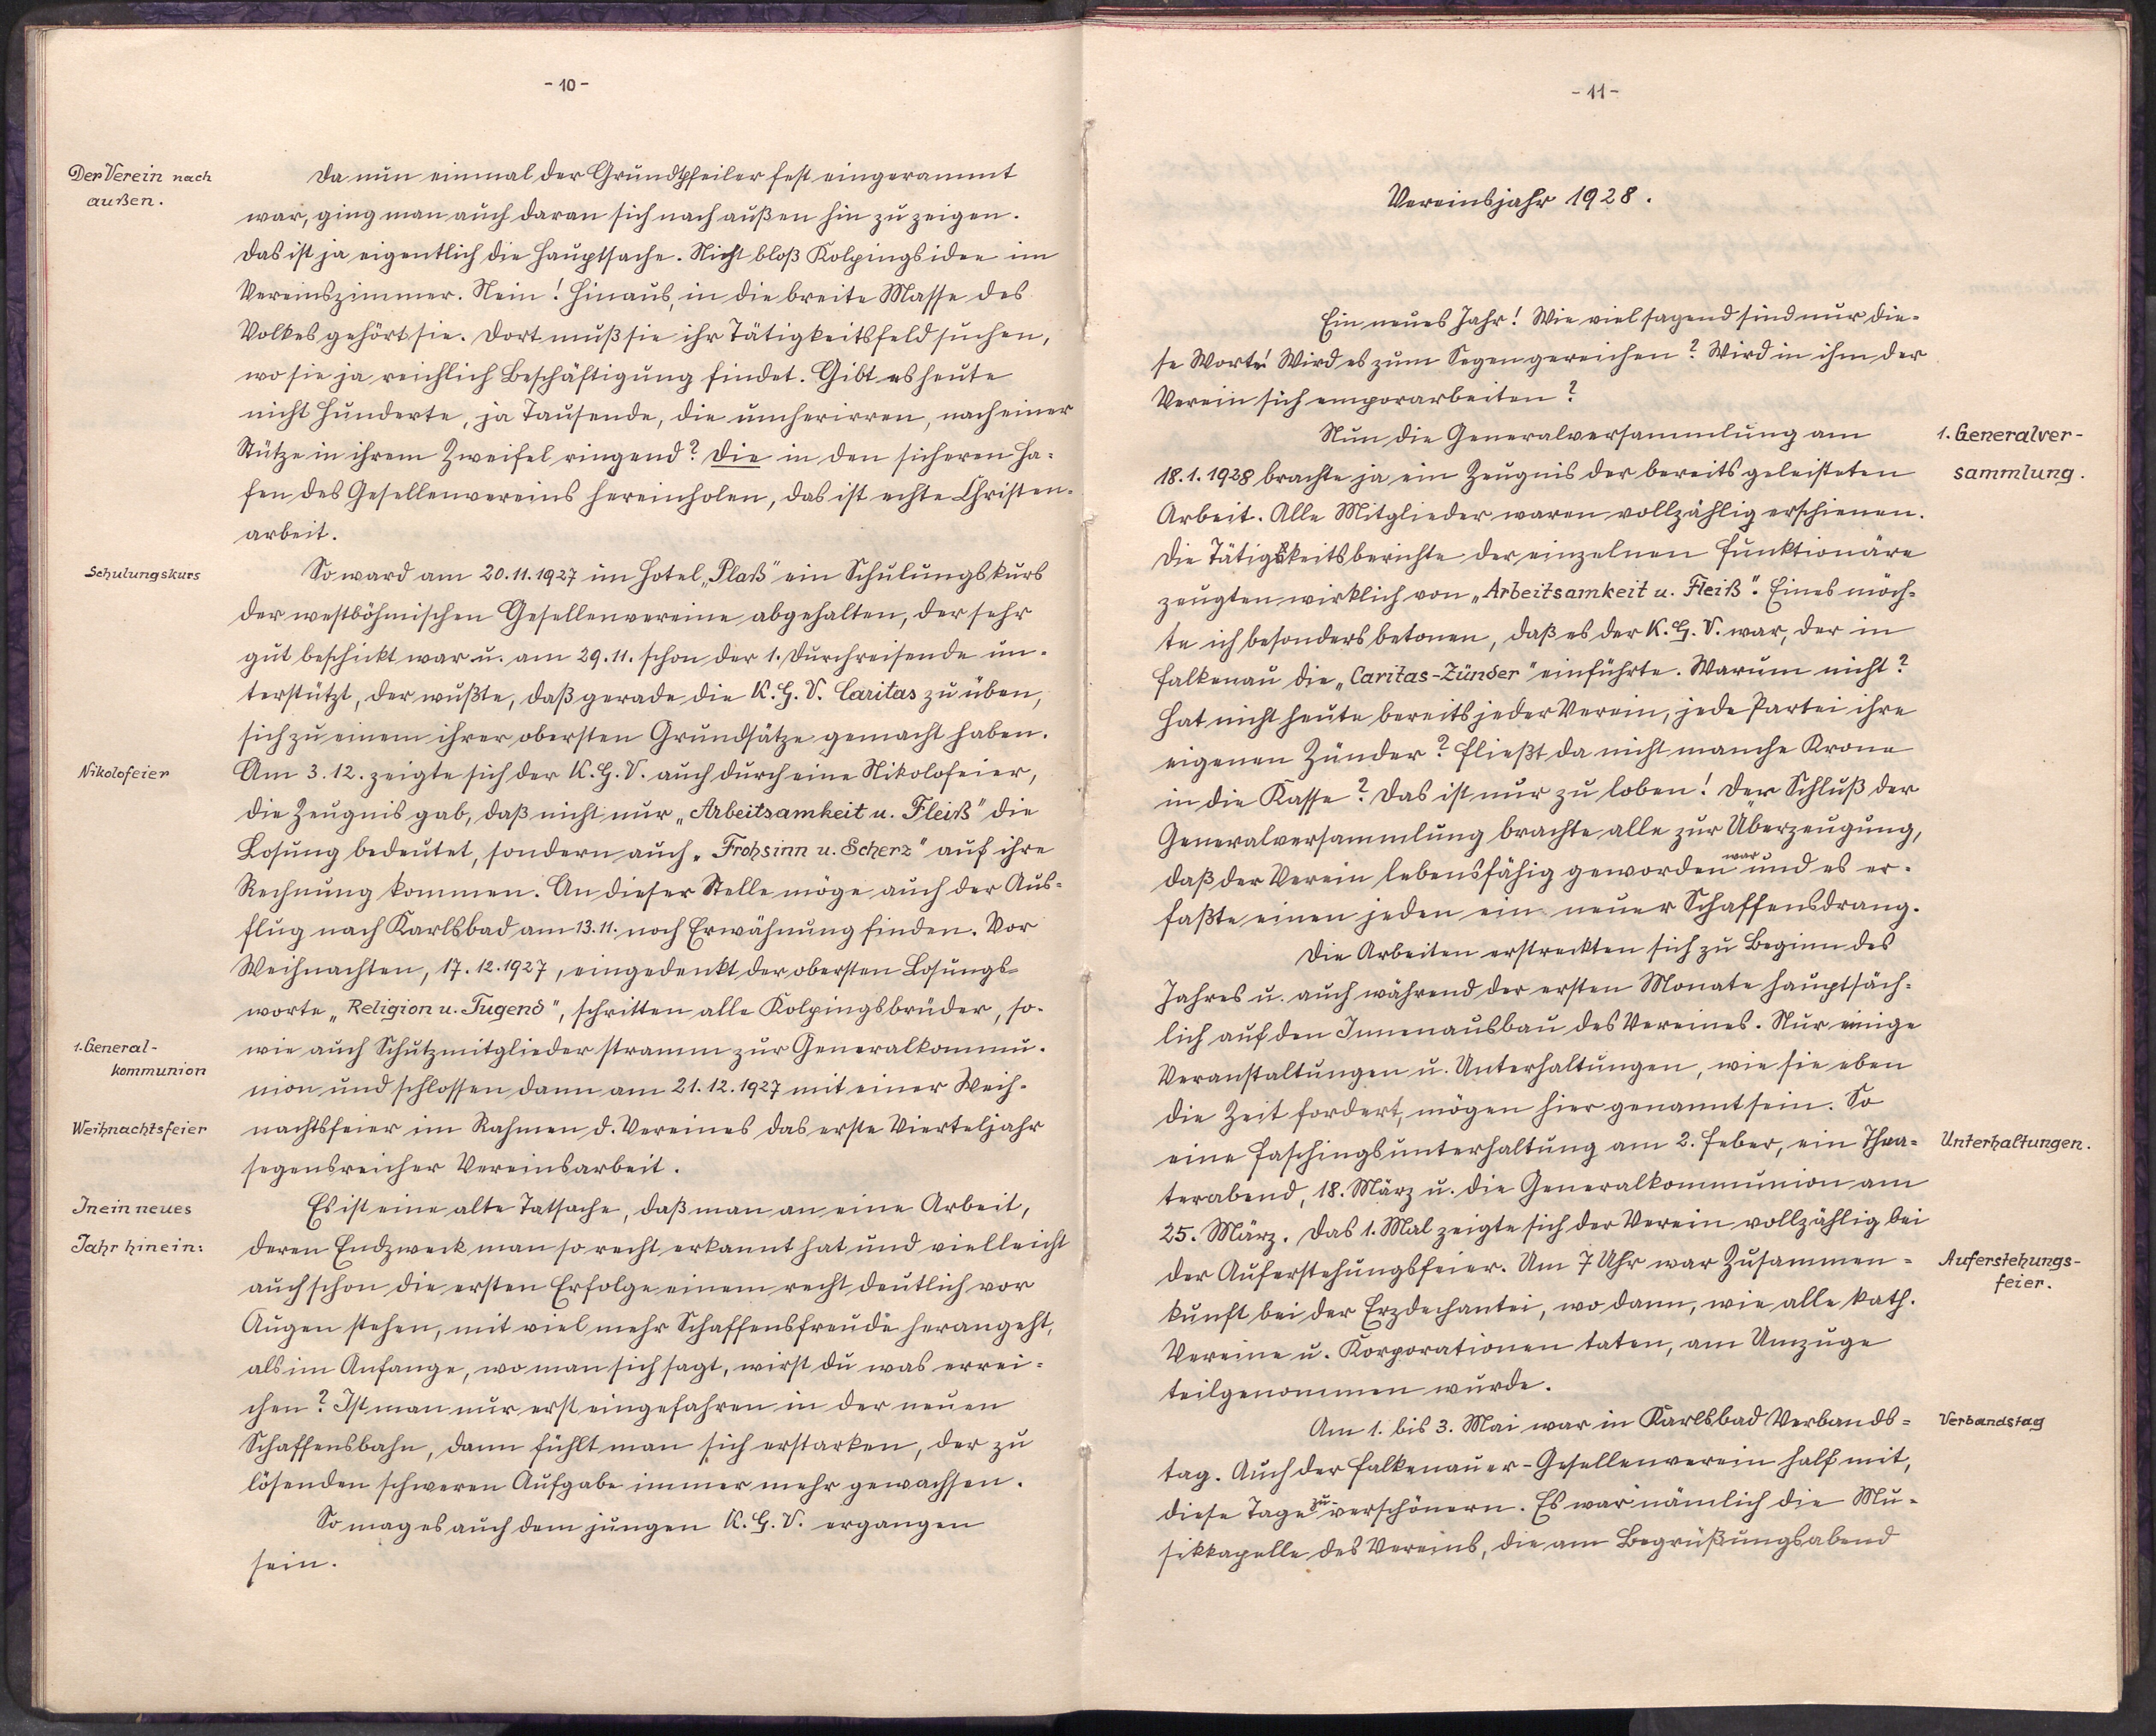 - 10 -
Der Verein nach
außen.
Da nun einmal der Grundpfeiler fest eingerammt
war, ging man auch daran sich nach außen hin zu zeigen.
Das ist ja eigentlich die Hauptsache. Nicht bloß Kolpingsidee im
Vereinszimmer. Nein! Hinaus, in die breite Masse des
Volkes gehört sie. Dort muß sie ihr Tätigkeitsfeld suchen,
wo sie ja reichlich Beschäftigung findet. Gibt es heute
nicht Hunderte, ja Tausende, die umherirren, nach einer
Stütze in ihrem Zweifel ringend? Die in den sicheren Ha-
fen des Gesellenvereins hereinholen, das ist echte Christen-
arbeit.
Schulungskurs
So ward am 20.11.1927 im Hotel „Plaß" ein Schulungskurs
der westböhmischen Gesellenvereine abgehalten, der sehr
gut beschickt war u. am 29.11. schon der 1. Durchreisende un-
terstützt, der wußte, daß gerade die K.G.V. Caritas zu üben,
sich zu einem ihrer obersten Grundsätze gemacht haben.
Nikolofeier
Am 3.12. zeigte sich der K.G.V. auch durch eine Nikolofeier,
die Zeugnis gab, daß nicht nur „Arbeitsamkeit u. Fleiß" die
Losung bedeutet, sondern auch „Frohsinn u. Scherz" auf ihre
Rechnung kommen. An dieser Stelle möge auch der Aus-
flug nach Karlsbad am 13.11. noch Erwähnung finden. Vor
Weihnachten, 17.12.1927, eingedenkt der obersten Losungs-
worte „Religion u. Tugend", schritten alle Kolpingsbrüder, so-
1. General-
kommunion
wie auch Schutzmitglieder stramm zur Generalkommu-
nion und schlossen dann am 21.12.1927 mit einer Weih-
Weihnachtsfeier
nachtsfeier im Rahmen d. Vereines das erste Vierteljahr
segensreicher Vereinsarbeit.
In ein neues
Jahr hinein:
Es ist eine alte Tatsache, daß man an eine Arbeit,
deren Endzweck man so recht erkannt hat und vielleicht
auch schon die ersten Erfolge einem recht deutlich vor
Augen stehen, mit viel mehr Schaffensfreude herangeht,
als im Anfange, wo man sich sagt, wirst du was errei-
chen? Ist man nur erst eingefahren in der neuen
Schaffensbahn, dann fühlt man sich erstarken, der zu
lösenden schweren Aufgabe immer mehr gewachsen.
So mag es auch dem jungen K.G.V. ergangen
sein.
- 11 -
Vereinsjahr 1928.
Ein neues Jahr! Wie viel sagend sind nur die-
se Worte! Wird es zum Segen gereichen? Wird in ihm der
Verein sich emporarbeiten?
1. Generalver-
sammlung.
Nun die Generalversammlung am
18.1.1928 brachte ja ein Zeugnis der bereits geleisteten
Arbeit. Alle Mitglieder waren vollzählig erschienen.
Die Tätigkeitsberichte der einzelnen Funktionäre
zeugten wirklich von „Arbeitsamkeit u. Fleiß". Eines möch-
te ich besonders betonen, daß es der K.G.V. war, der in
Falkenau die „Caritas-Zünder" einführte. Warum nicht?
Hat nicht heute bereits jeder Verein, jede Partei ihre
eigenen Zünder? Fließt da nicht manche Krone
in die Kasse? Das ist nur zu loben! Der Schluß der
Generalversammlung brachte alle zur Überzeugung,
daß der Verein lebensfähig geworden war und es er-
faßte einen jeden ein neuer Schaffensdrang.
Die Arbeiten erstreckten sich zu Beginn des
Jahres u. auch während der ersten Monate hauptsäch-
lich auf den Innenausbau des Vereines. Nur einige
Veranstaltungen u. Unterhaltungen, wie sie eben
die Zeit fordert, mögen hier genannt sein. So
Unterhaltungen.
eine Faschingsunterhaltung am 2. Feber, ein Thea-
terabend, 18. März u. die Generalkommunion am
25. März. Das 1. Mal zeigte sich der Verein vollzählig bei
Auferstehungs-
feier.
der Auferstehungsfeier. Um 7 Uhr war Zusammen-
kunft bei der Erzdechantei, wo dann, wie alle kath.
Vereine u. Korporationen taten, am Umzuge
teilgenommen wurde.
Verbandstag
Am 1. bis 3. Mai war in Karlsbad Verbands-
tag. Auch der Falkenauer-Gesellenverein half mit,
diese Tage zu verschönern. Es war nämlich die Mu-
sikkapelle des Vereins, die am Begrüßungsabend